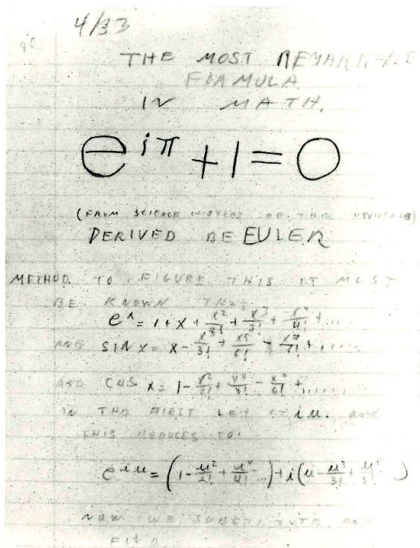 4/33
THE MOST REMARKABLE
FORMULA
IN MATH.
e^{iπ} + 1 = 0
(FROM SCIENCE HISTORY OF THE UNIVERSE)
DERIVED BE EULER
METHOD TO FIGURE THIS IT MUST
BE KNOWN THAT
e^x = 1 + x + x²/2! + x³/3! + x⁴/4! + ....
AND SIN x = x - x³/3! + x⁵/5! - x⁷/7! + .....
AND COS x = 1 - x²/2! + x⁴/4! - x⁶/6! + .....
IN THE FIRST LET x = iu. and
THIS REDUCES TO:
e^{iu} = (1 - u²/2! + u⁴/4! ...) + i(u - u³/3! + u⁵/5! ...)
NOW WE SUBSTITUTE AND
FIND